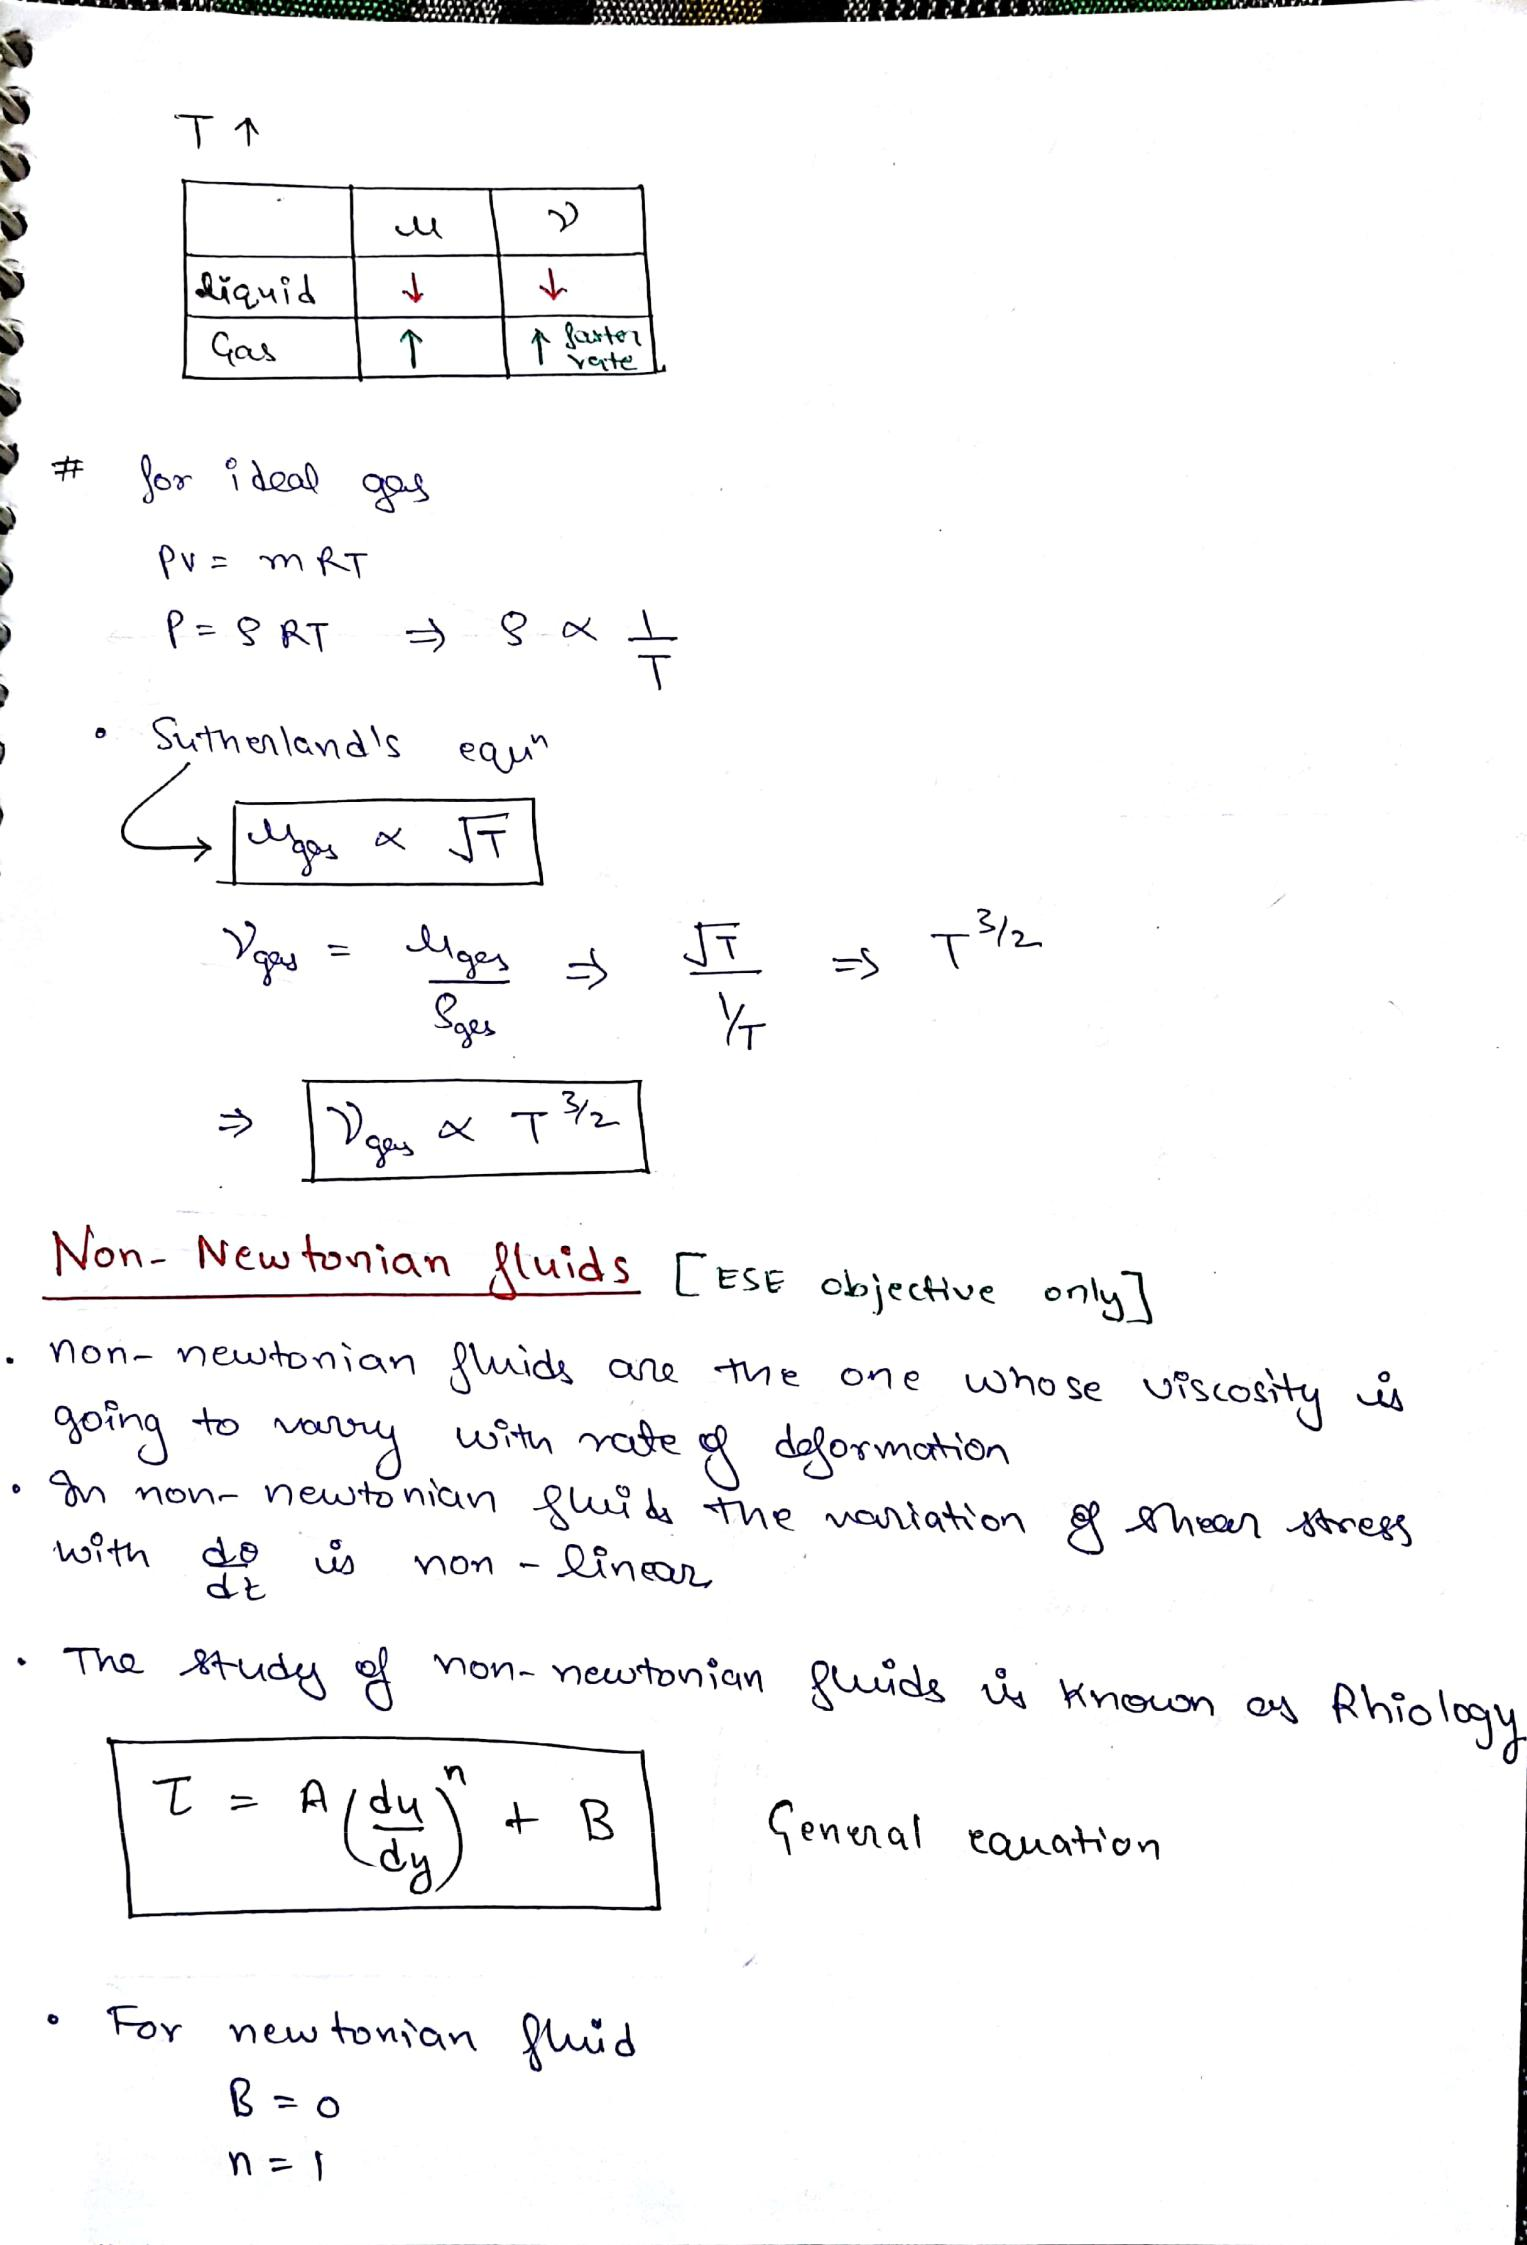 T ↑
μ ν
liquid ↓ ↓
Gas ↑ ↑ faster rate
# for ideal gas
PV = mRT
P = ρRT ⇒ ρ ∝ 1/T
• Sutherland's equⁿ
μgas ∝ √T
νgas = μgas/ρgas ⇒ √T/(1/T) ⇒ T^3/2
⇒ νgas ∝ T^3/2
Non-Newtonian fluids [ESE objective only]
• non-newtonian fluids are the one whose viscosity is
going to varry with rate of deformation
• In non-newtonian fluids the variation of shear stress
with dθ/dt is non-linear
• The study of non-newtonian fluids is known as Rhiology
τ = A(du/dy)^n + B General equation
• For newtonian fluid
B = 0
n = 1